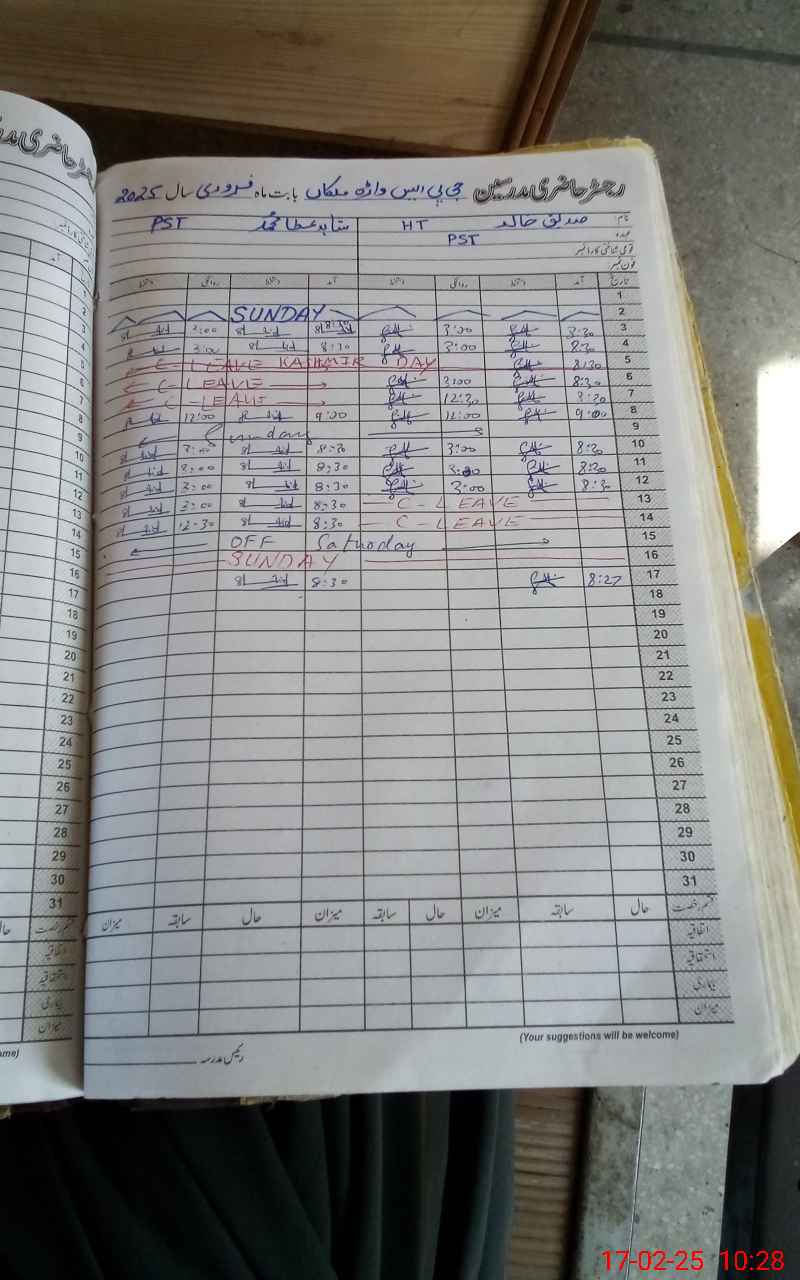 رجسٹر حاضری مدرسین جی پی ایس واڑہ ملکاں بابت ماہ فروری سال 2025
نام صدیق خالد HT شاہد عطا محمد PST
عہدہ PST
قومی شناختی کارڈ نمبر
فون نمبر
تاریخ آمد دستخط روانگی دستخط آمد دستخط روانگی دستخط
1
2 SUNDAY
3 3:30 3:00 8:30 3:00
4 8:30 3:00 8:30 3:00
5 8:30 C-LEAVE KASHMIR DAY
6 8:30 3:00 C-LEAVE
7 8:30 12:30 C-LEAVE
8 9:00 12:00 9:00 12:00
9 Sunday
10 8:30 3:00 8:30 3:00
11 8:30 3:00 8:30 3:00
12 8:30 3:00 8:30 3:00
13 C-LEAVE 8:30 3:00
14 C-LEAVE 8:30 12:30
15 OFF Saturday
16 SUNDAY
17 8:27 8:30
18
19
20
21
22
23
24
25
26
27
28
29
30
31
قسم رخصت حال سابقہ میزان حال سابقہ میزان حال سابقہ میزان
اتفاقیہ
استحقاقیہ
بیماری
میزان
(Your suggestions will be welcome)
رئیس مدرسہ
17-02-25 10:28